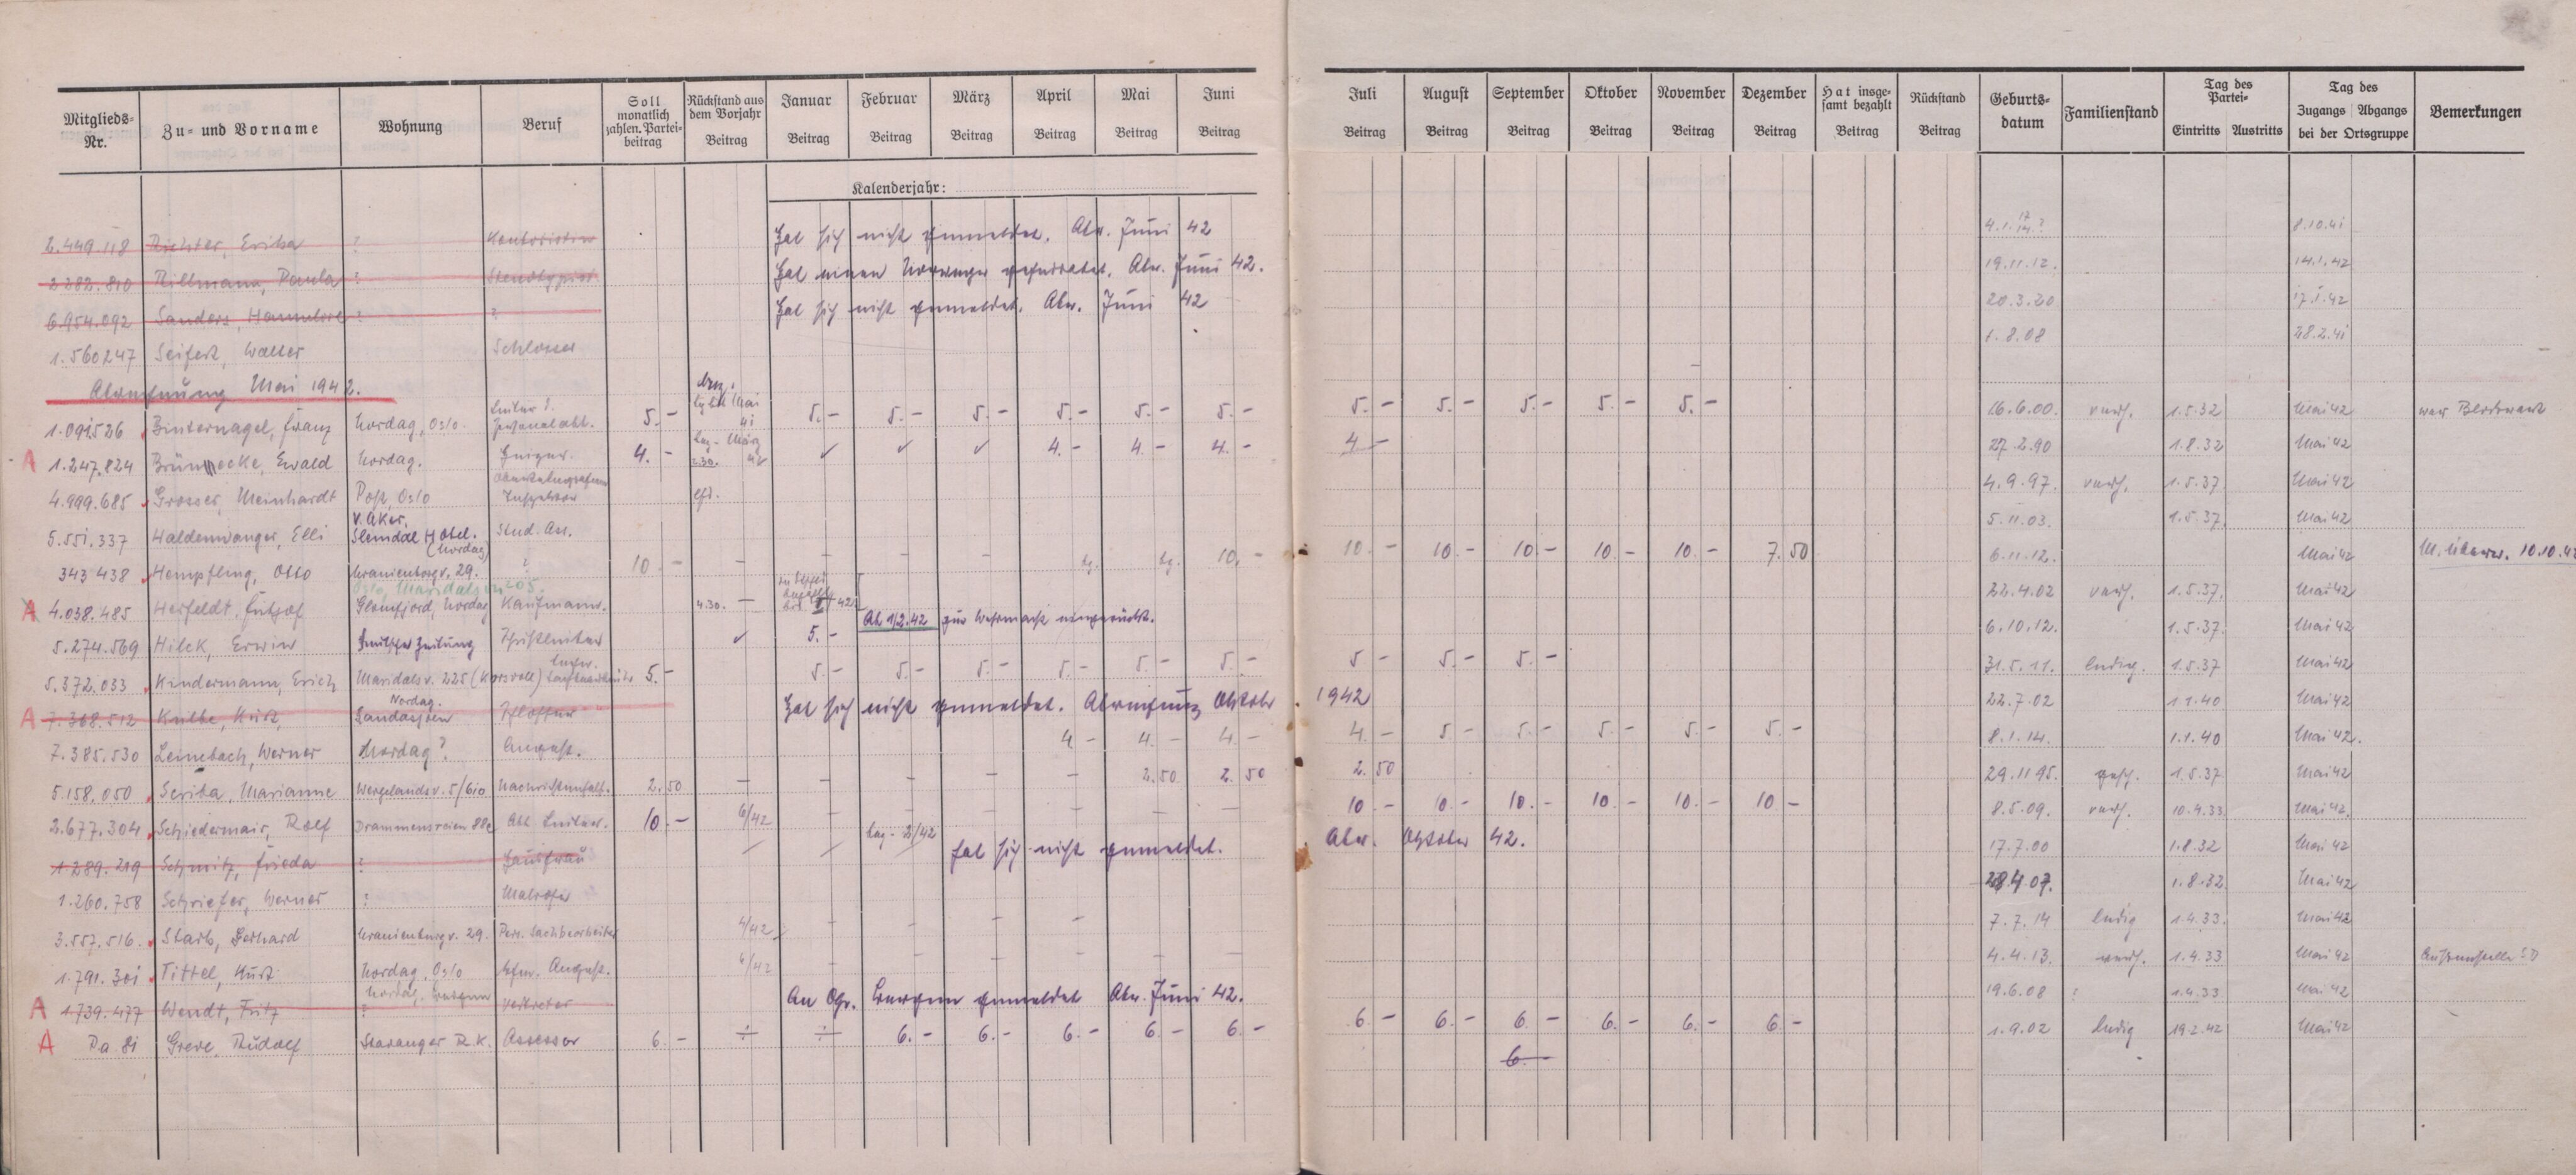 Mitglieds-Nr. Zu- und Vorname Wohnung Beruf Soll monatlich zahlen. Partei-beitrag Rückstand aus dem Vorjahr Beitrag Januar Beitrag Februar Beitrag März Beitrag April Beitrag Mai Beitrag Juni Beitrag Juli Beitrag August Beitrag September Beitrag Oktober Beitrag November Beitrag Dezember Beitrag Hat insge-samt bezahlt Beitrag Rückstand Beitrag Geburts-datum Familienstand Tag des Partei- Eintritts Austritts Tag des Zugangs Abgangs bei der Ortsgruppe Bemerkungen
Kalenderjahr:
2.449.118 Richter, Erika ? Kontoristin Hat sich nicht gemeldet. Abw. Juni 42 8.10.41
2282.810 Rillmann, Paula ? Stenotypist Hat einen Norweger geheiratet. Abw. Juni 42. 19.11.12. 14.1.42
6.954.092 Sanders, Hannelore ? ? Hat sich nicht gemeldet. Abw. Juni 42 20.3.20 17.1.42
1.560247 Seifert, Walter Schlosser 1.8.08 28.2.41
Mai 1942.
1.091526 Binternagel, Franz Nordag, Oslo. Leiter d. Personalabt. 5.- 5.- 5.- 5.- 5.- 5.- 5.- 5.- 5.- 5.- 5.- 5.- 16.6.00. verh. 1.5.32 Mai 42
A 1.247.824 Brünnecke, Ewald Nordag. 4.- ✓ ✓ ✓ 4.- 4.- 4.- 4 - 27.2.90 1.8.32 Mai 42
4.999.685 Grosser, Meinhardt Post, Oslo Inspektor 4.9.97. verh. 1.5.37. Mai 42
5.551.337 Haldenwanger, Elli V. Aker. Slemdal Hotel. (Nordag) Stud. Ass. 5.11.03. 1.5.37. Mai 42
343438 Hempfling, Otto Uranienborgv. 29. ? 10.- - - - - 10.- 10.- 10.- 10.- 10.- 10.- 7.50 6.11.12. Mai 42 10.10.42
A 4.038.485 Herfeldt, Glomfjord, Nordag Kaufmann. 4.30. - 22.4.02 verh. 1.5.37. Mai 42
5.274.569 Hilck, Erwin Deutsche Zeitung Schriftleiter ✓ 5.- Ab 1/2.42 zur Wehrmacht eingerückt. 6.10.12. 1.5.37. Mai 42
5.372.033 Kindermann, Erich Maridalsv. 225 (Korsvoll) 5.- 5.- 5.- 5.- 5.- 5.- 5.- 5 - 5.- 5.- 31.5.11. ledig. 1.5.37 Mai 42
A 7.368.512 Kulbe, Kurt Nordag. Schlosser Hat sich nicht gemeldet. Oktober 1942 22.7.02 1.1.40 Mai 42
7.385.530 Leinebach, Werner Nordag? Angest. 4.- 4.- 4.- 4.- 5.- 5.- 5.- 5.- 5.- 8.1.14. 1.1.40 Mai 42.
5.158.050 Scriba, Marianne Wergelandsv. 5/610 2.50 - - - - - 2.50 2.50 2.50 29.11 95. gesch. 1.5.37 Mai 42
2.677.304 Schiedermair, Rolf Drammensveien 88c Abt. Leiter. 10.- 6/42 - - - - - - 10.- 10.- 10.- 10.- 10.- 10 - 8.5.09. verh. 10.4.33. Mai 42.
1289.219 Schmitz, Frieda ? Hausfrau 2/42 Hat sich nicht gemeldet. Abw. Oktober 42. 17.7.00 1.8.32 Mai 42
1.260.758 Schriefer, Werner ? Matrose 28.4.07. 1.8.32 Mai 42
3.557.516. Starb, Gerhard Uranienburgv. 29. Pers. Sachbearbeiter 4/42 - - - - 7.7.14 ledig 1.4.33. Mai 42
1.791.301 Tittel, Kurt Nordag, Oslo kfm. Angest. 6/42 - - - - - - 4.4.13. verh. 1.4.33 Mai 42 Aussenstelle SD
A 1.739.477 Wendt, Fritz ? Vertreter An Ogr. Bergen gemeldet Abw. Juni 42. 19.6.08 ? 1.4.33 Mai 42
A Pa 81 Greve, Rudolf Stavanger R.K. Assessor 6.- ÷ ÷ 6.- 6.- 6.- 6.- 6.- 6.- 6.- 6.- 6.- 6.- 6.- 1.9.02 ledig 19.2.42 Mai 42
6.-